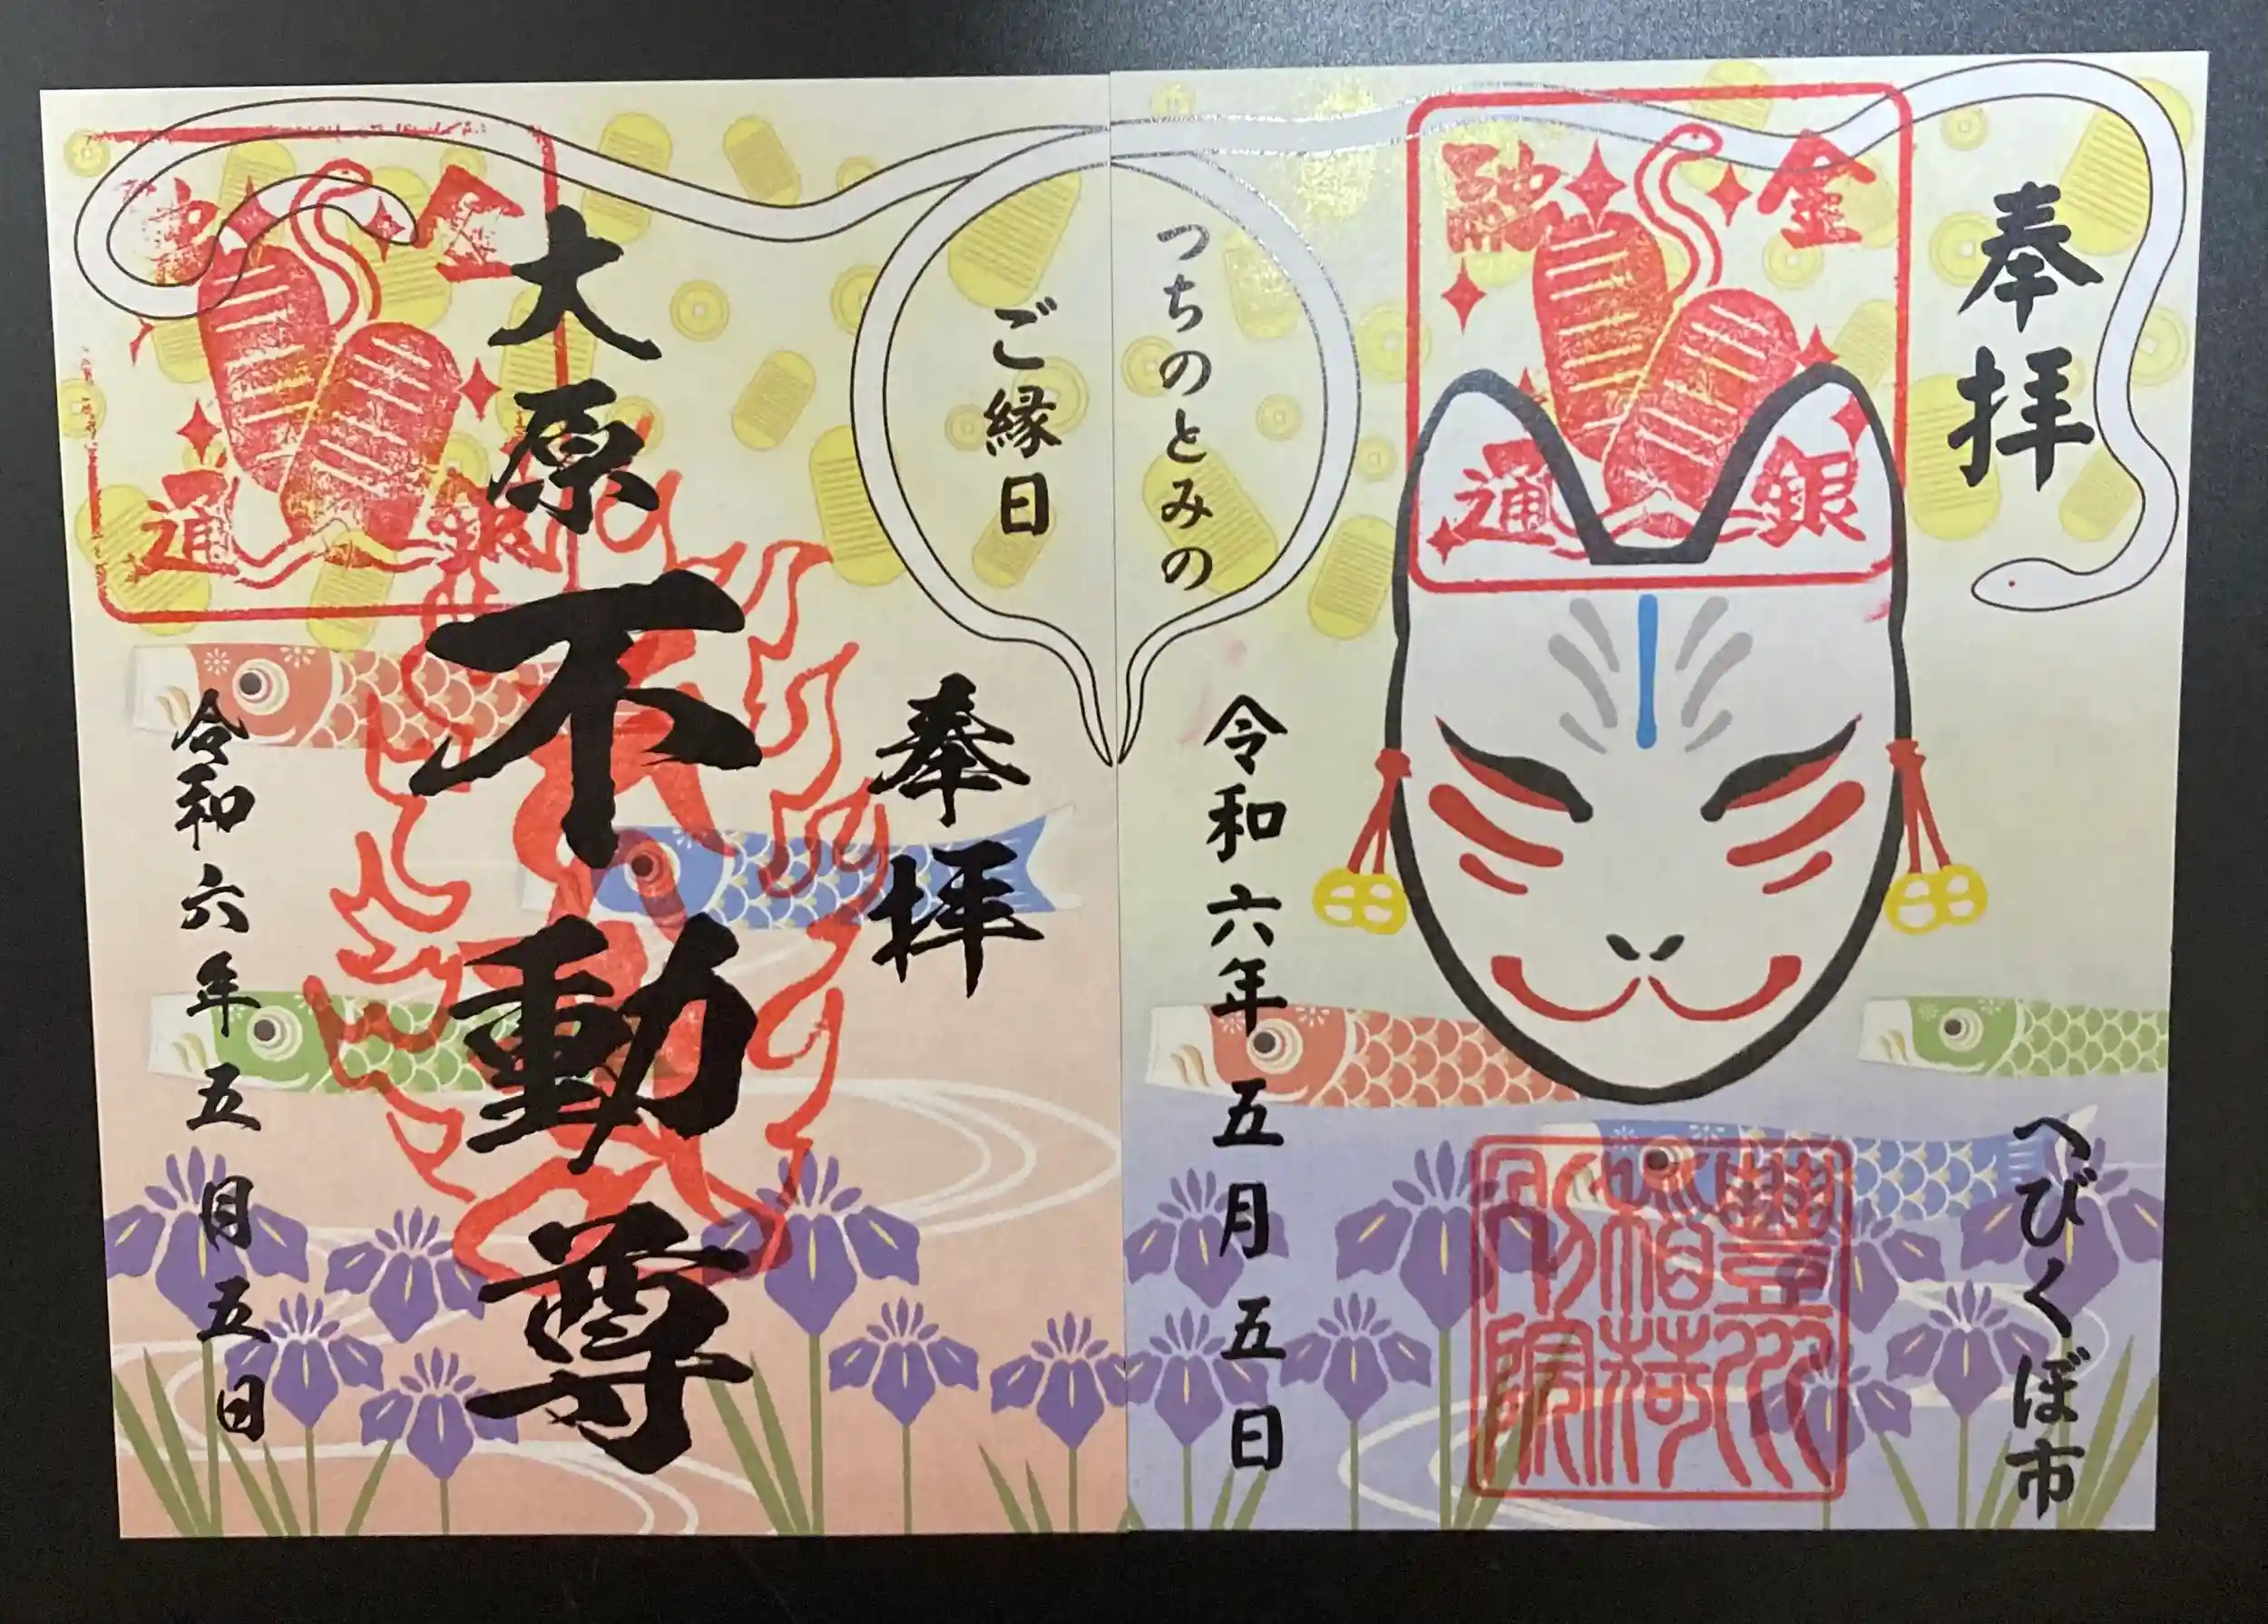 奉拝
金融
銀通
へびくぼ市
つちのとみの
ご縁日
令和六年五月五日
豊川
稲荷
別院
奉拝
大原不動尊
金融
銀通
令和六年五月五日